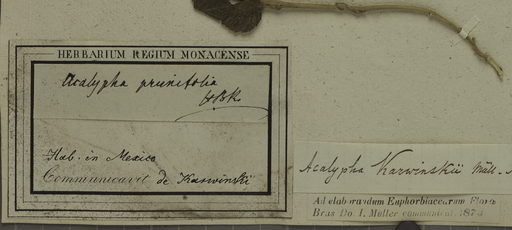 HERBARIUM REGIUM MONACENSE
Acalypha prunifolia
HBK.
Hab. in Mexico
Communicavit de Karwinski
Acalypha Karwinskii Müll.
Ad elaborandum Euphorbiacearum Florae
Bras Do. I. Müller communicat. 187